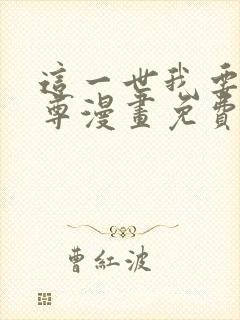 這一世我要
尊漫畫免費
曹紅波